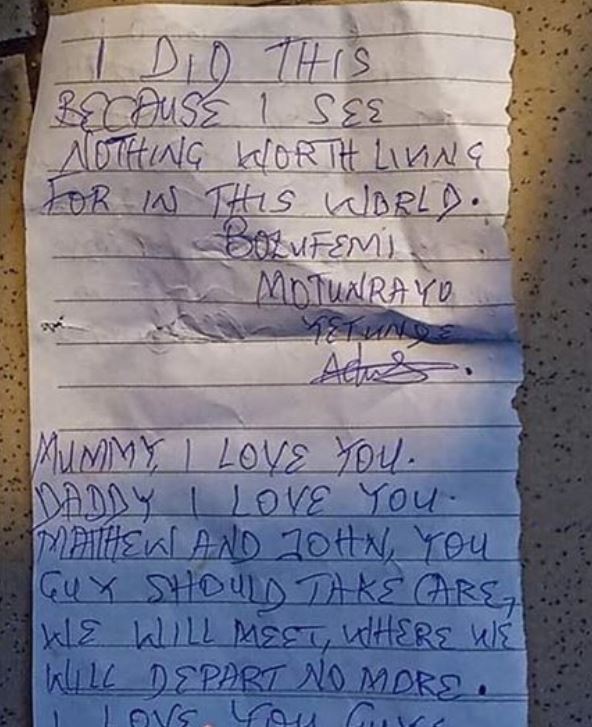 I DID THIS
BECAUSE I SEE
NOTHING WORTH LIVING
FOR IN THIS WORLD.
BOLUFEMI
MOTUNRAYO
YETUNDE
MUMMY, I LOVE YOU.
DADDY I LOVE YOU.
MATHEW AND JOHN, YOU
GUY SHOULD TAKE CARE,
WE WILL MEET, WHERE WE
WILL DEPART NO MORE.
I LOVE YOU GUYS